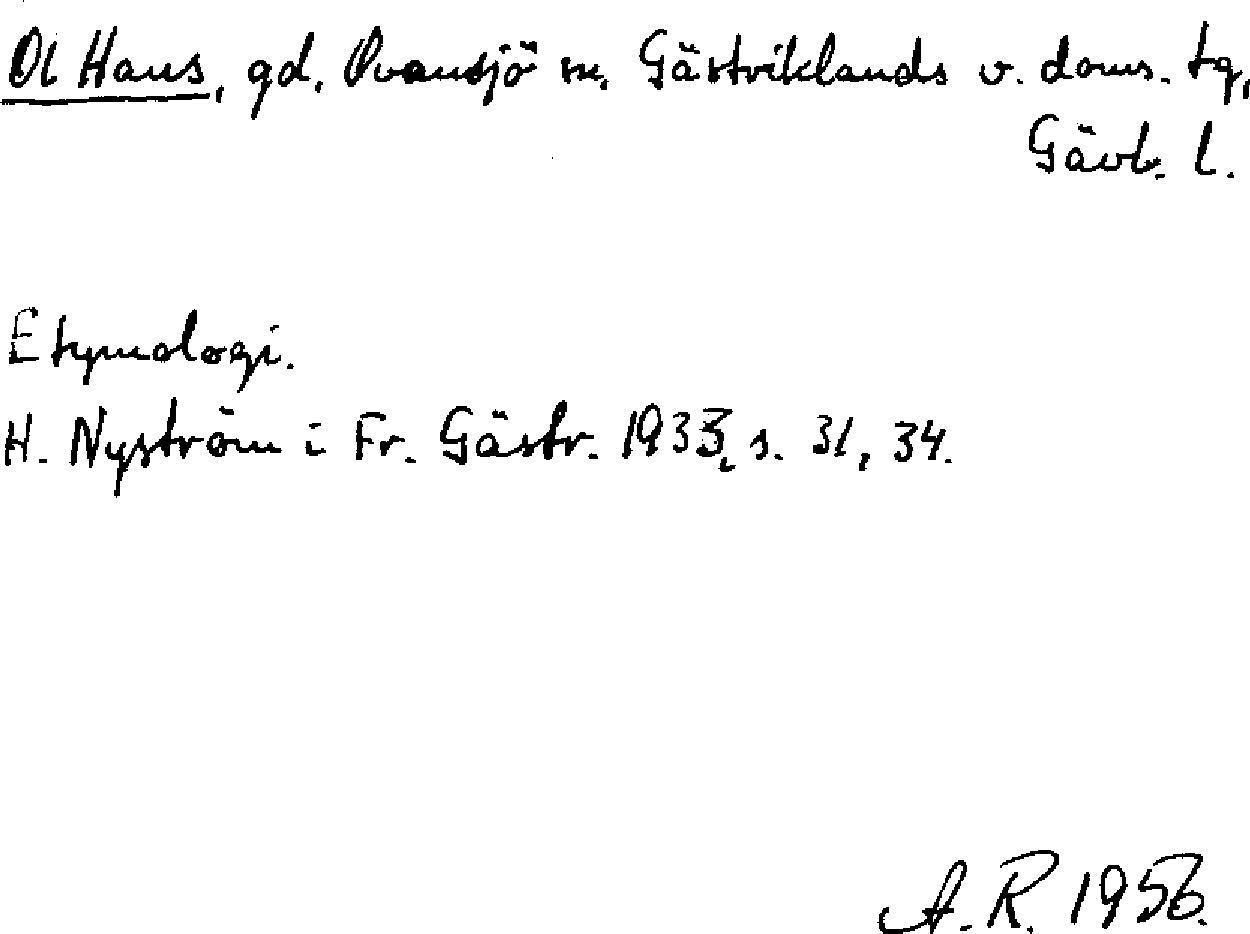 Ol Hans, gd, Ovansjö sn, Gästriklands v. doms. tg,
Gävl. l.
Etymologi.
H. Nyström i Fr. Gästr. 1933, s. 31, 34.
A. R. 1956.